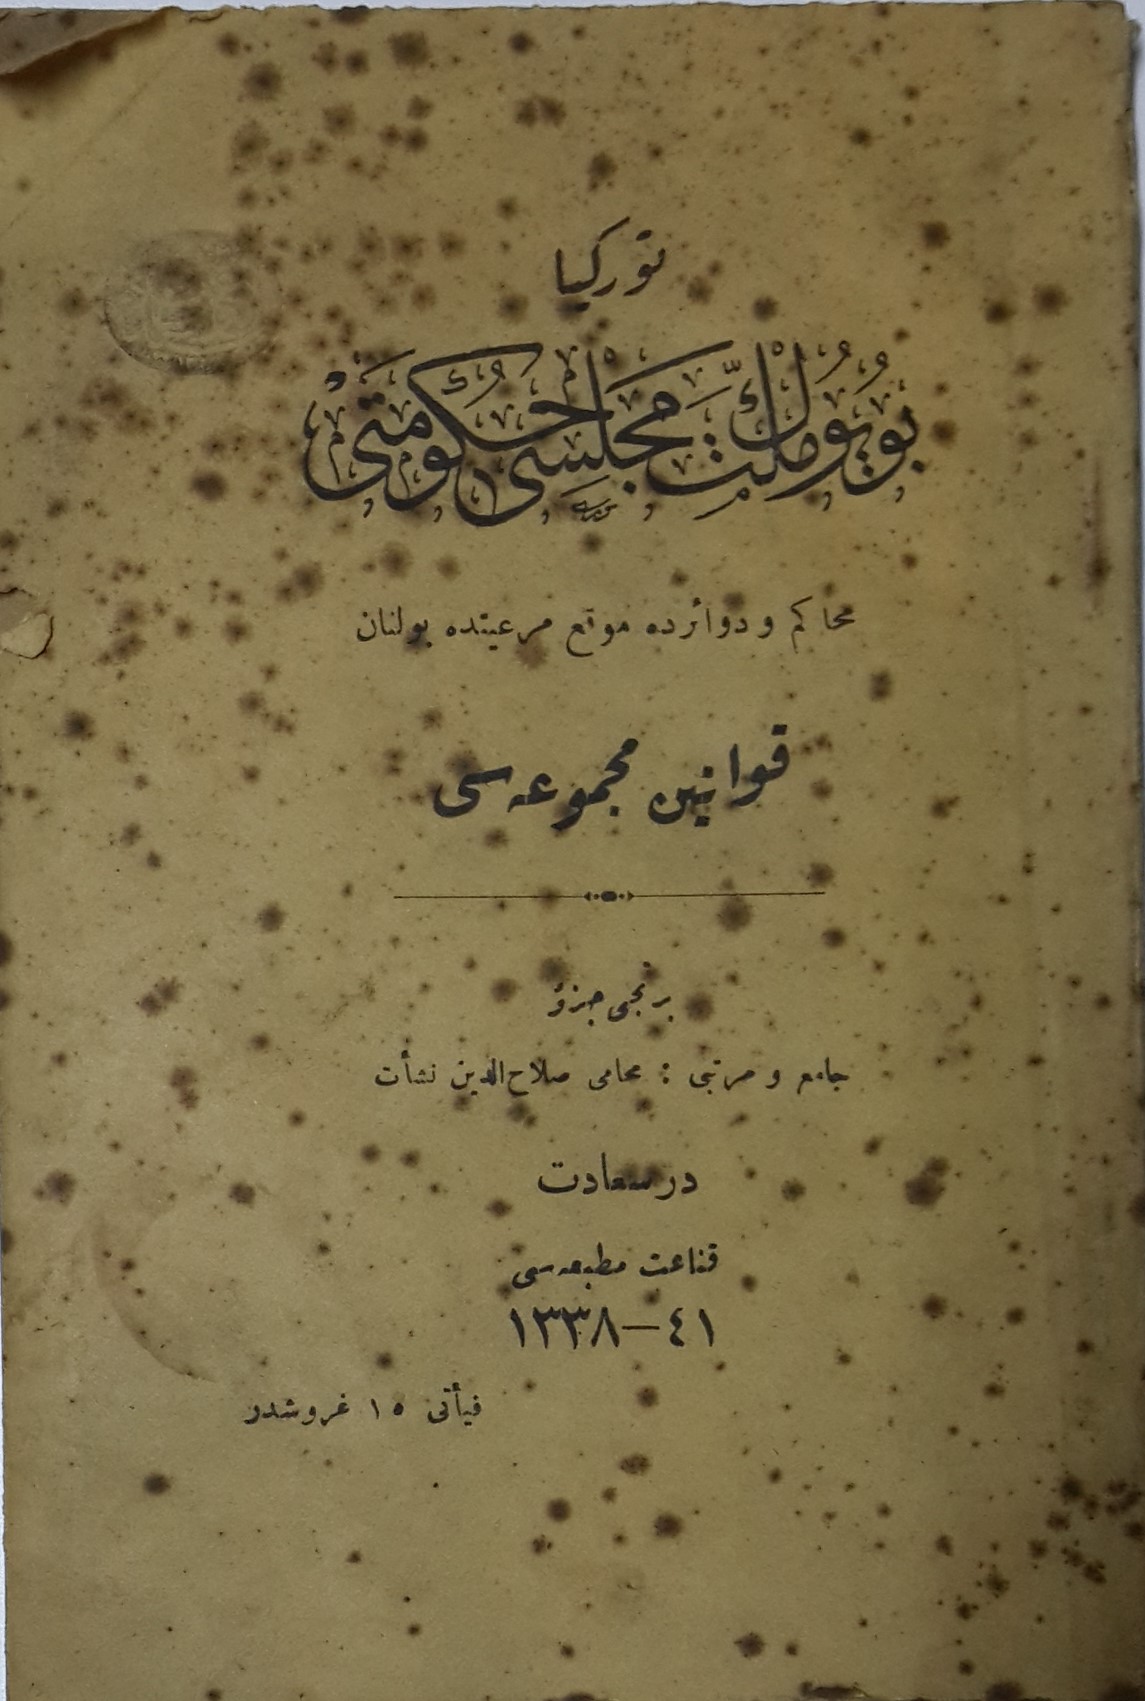 توركيا
بويوك ملت مجلسى حكومتى
محاكم و دوائرده موقع مرعيتده بولنان
قوانين مجموعه‌سى
برنجى جزؤ
جامع و مرتبى : محامى صلاح‌الدين نشأت
درسعادت
قناعت مطبعه‌سى
١٣٣٨—٤١
فيأتى ١٥ غروشدر